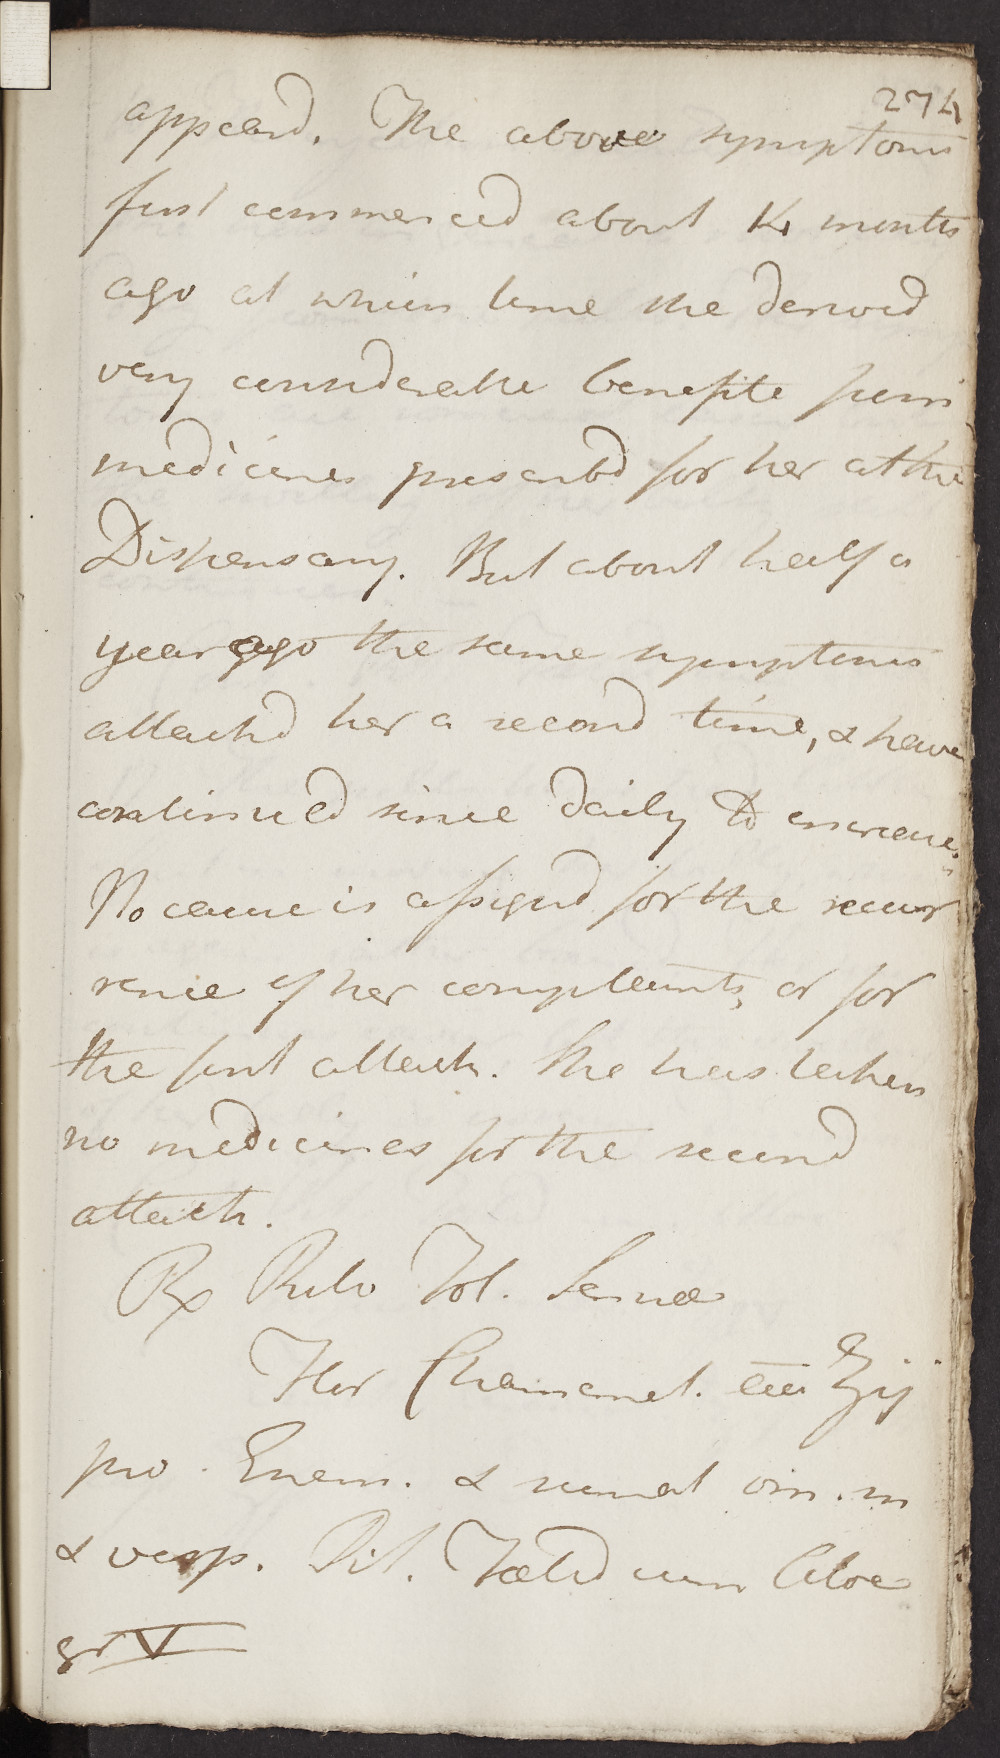 274
appeard. The above symptoms
first commenced about 14 months
ago at which time she derived
very considerable benefite from
medicines prescribd for her at the
Dispensary. But about half a
year ago the same symptoms
attackd her a second time, & have
continued since daily to encrease.
No cause is assignd for the recur
rence of her complaints, or for
the first attack. She has taken
no medicines for the second
attack.
Rx Rulv Fol. Sennæ
Flor Chamæmel. āā ʒij
pro Enem. & sumat om. m
& vesp. Pil. Fœtid cum Aloe
gr V